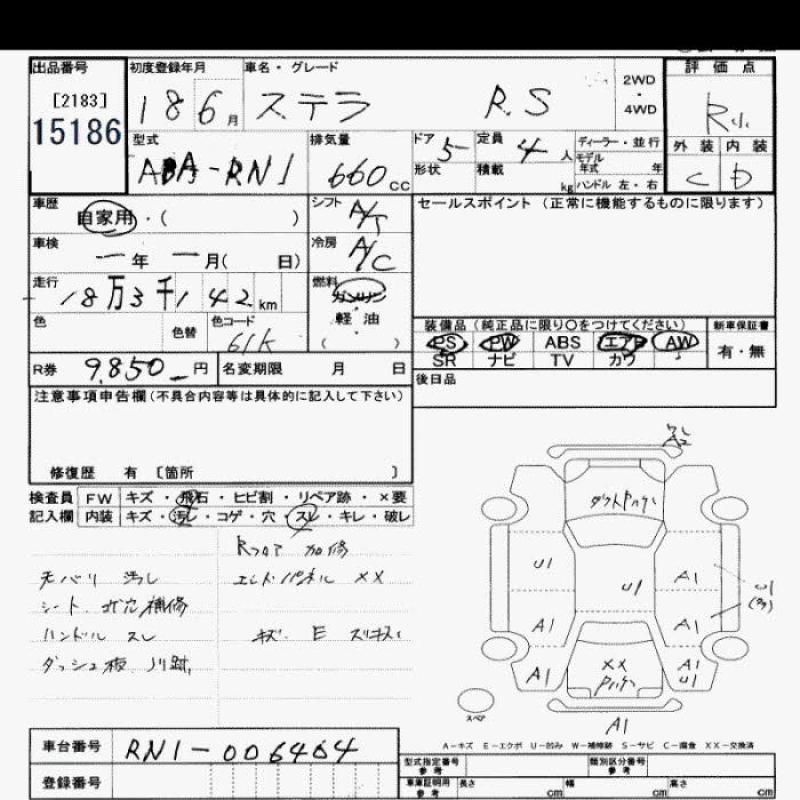 出品番号 初度登録年月 車名・グレード 評価点
[2183] 18 6月 ステラ R.S 2WD・4WD
15186
型式 排気量 ドア 5 定員 4人 ディーラー・並行 外装 内装
ABA-RN1 660cc 形状 積載 kg モデル年式 年 ハンドル 左・右 C D
車歴 自家用・( ) シフト A/T セールスポイント(正常に機能するものに限ります)
車検 ー年 ー月( 日) 冷房 A/C
走行 18万3千142km 燃料 ガソリン・軽油 ( )
色 色替 色コード 61K 装備品(純正品に限り○をつけてください) 新車保証書
PS PW ABS エアB AW 有・無
SR ナビ TV カワ
R券 9,850円 名変期限 月 日 後日品
注意事項申告欄(不具合内容等は具体的に記入して下さい)
修復歴 有 〔箇所 〕
検査員 FW キズ・飛石・ヒビ割・リペア跡・×要
記入欄 内装 キズ・汚し・コゲ・穴・スレ・キレ・破レ
Rフロア 加修
汚し エンドパネル XX
シート 補修
ハンドル スレ キズ E
ダッシュ板 ノリ跡
A2
U1 U1 A1 U1
A1 A1
A1 XX A1 U1
スペア
A1
A-キズ E-エクボ U-凹み W-補修跡 S-サビ C-腐食 XX-交換済
車台番号 RN1-006464
登録番号
型式指定番号 参考 類別区分番号 参考
車庫証明用 参考 長さ cm 幅 cm 高さ cm